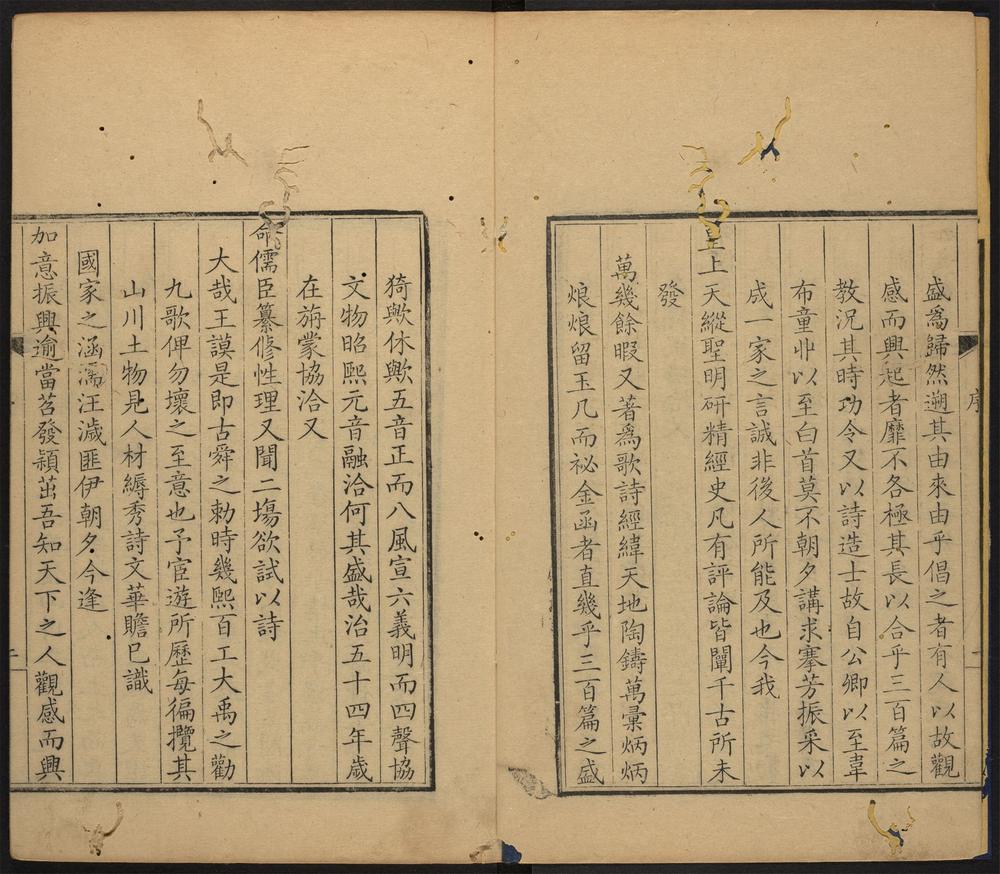 序
二
盛爲歸然遡其由來由乎倡之者有人以故觀
感而興起者靡不各極其長以合乎三百篇之
教況其時功令又以詩造士故自公卿以至韋
布童丱以至白首莫不朝夕講求搴芳振采以
成一家之言誠非後人所能及也今我
皇上天縱聖明研精經史凡有評論皆闡千古所未
發
萬幾餘暇又著爲歌詩經緯天地陶鑄萬彙炳炳
烺烺留玉几而祕金函者直幾乎三百篇之盛
猗歟休歟五音正而八風宣六義明而四聲協
文物昭熙元音融洽何其盛哉治五十四年歲
在旃蒙協洽又
命儒臣纂修性理又聞二塲欲試以詩
大哉王謨是即古舜之勅時幾熙百工大禹之勸
九歌俾勿壞之至意也予宦遊所歷每徧攬其
山川土物見人材縟秀詩文華贍已識
國家之涵濡汪濊匪伊朝夕今逢
加意振興逾當苕發穎茁吾知天下之人觀感而興